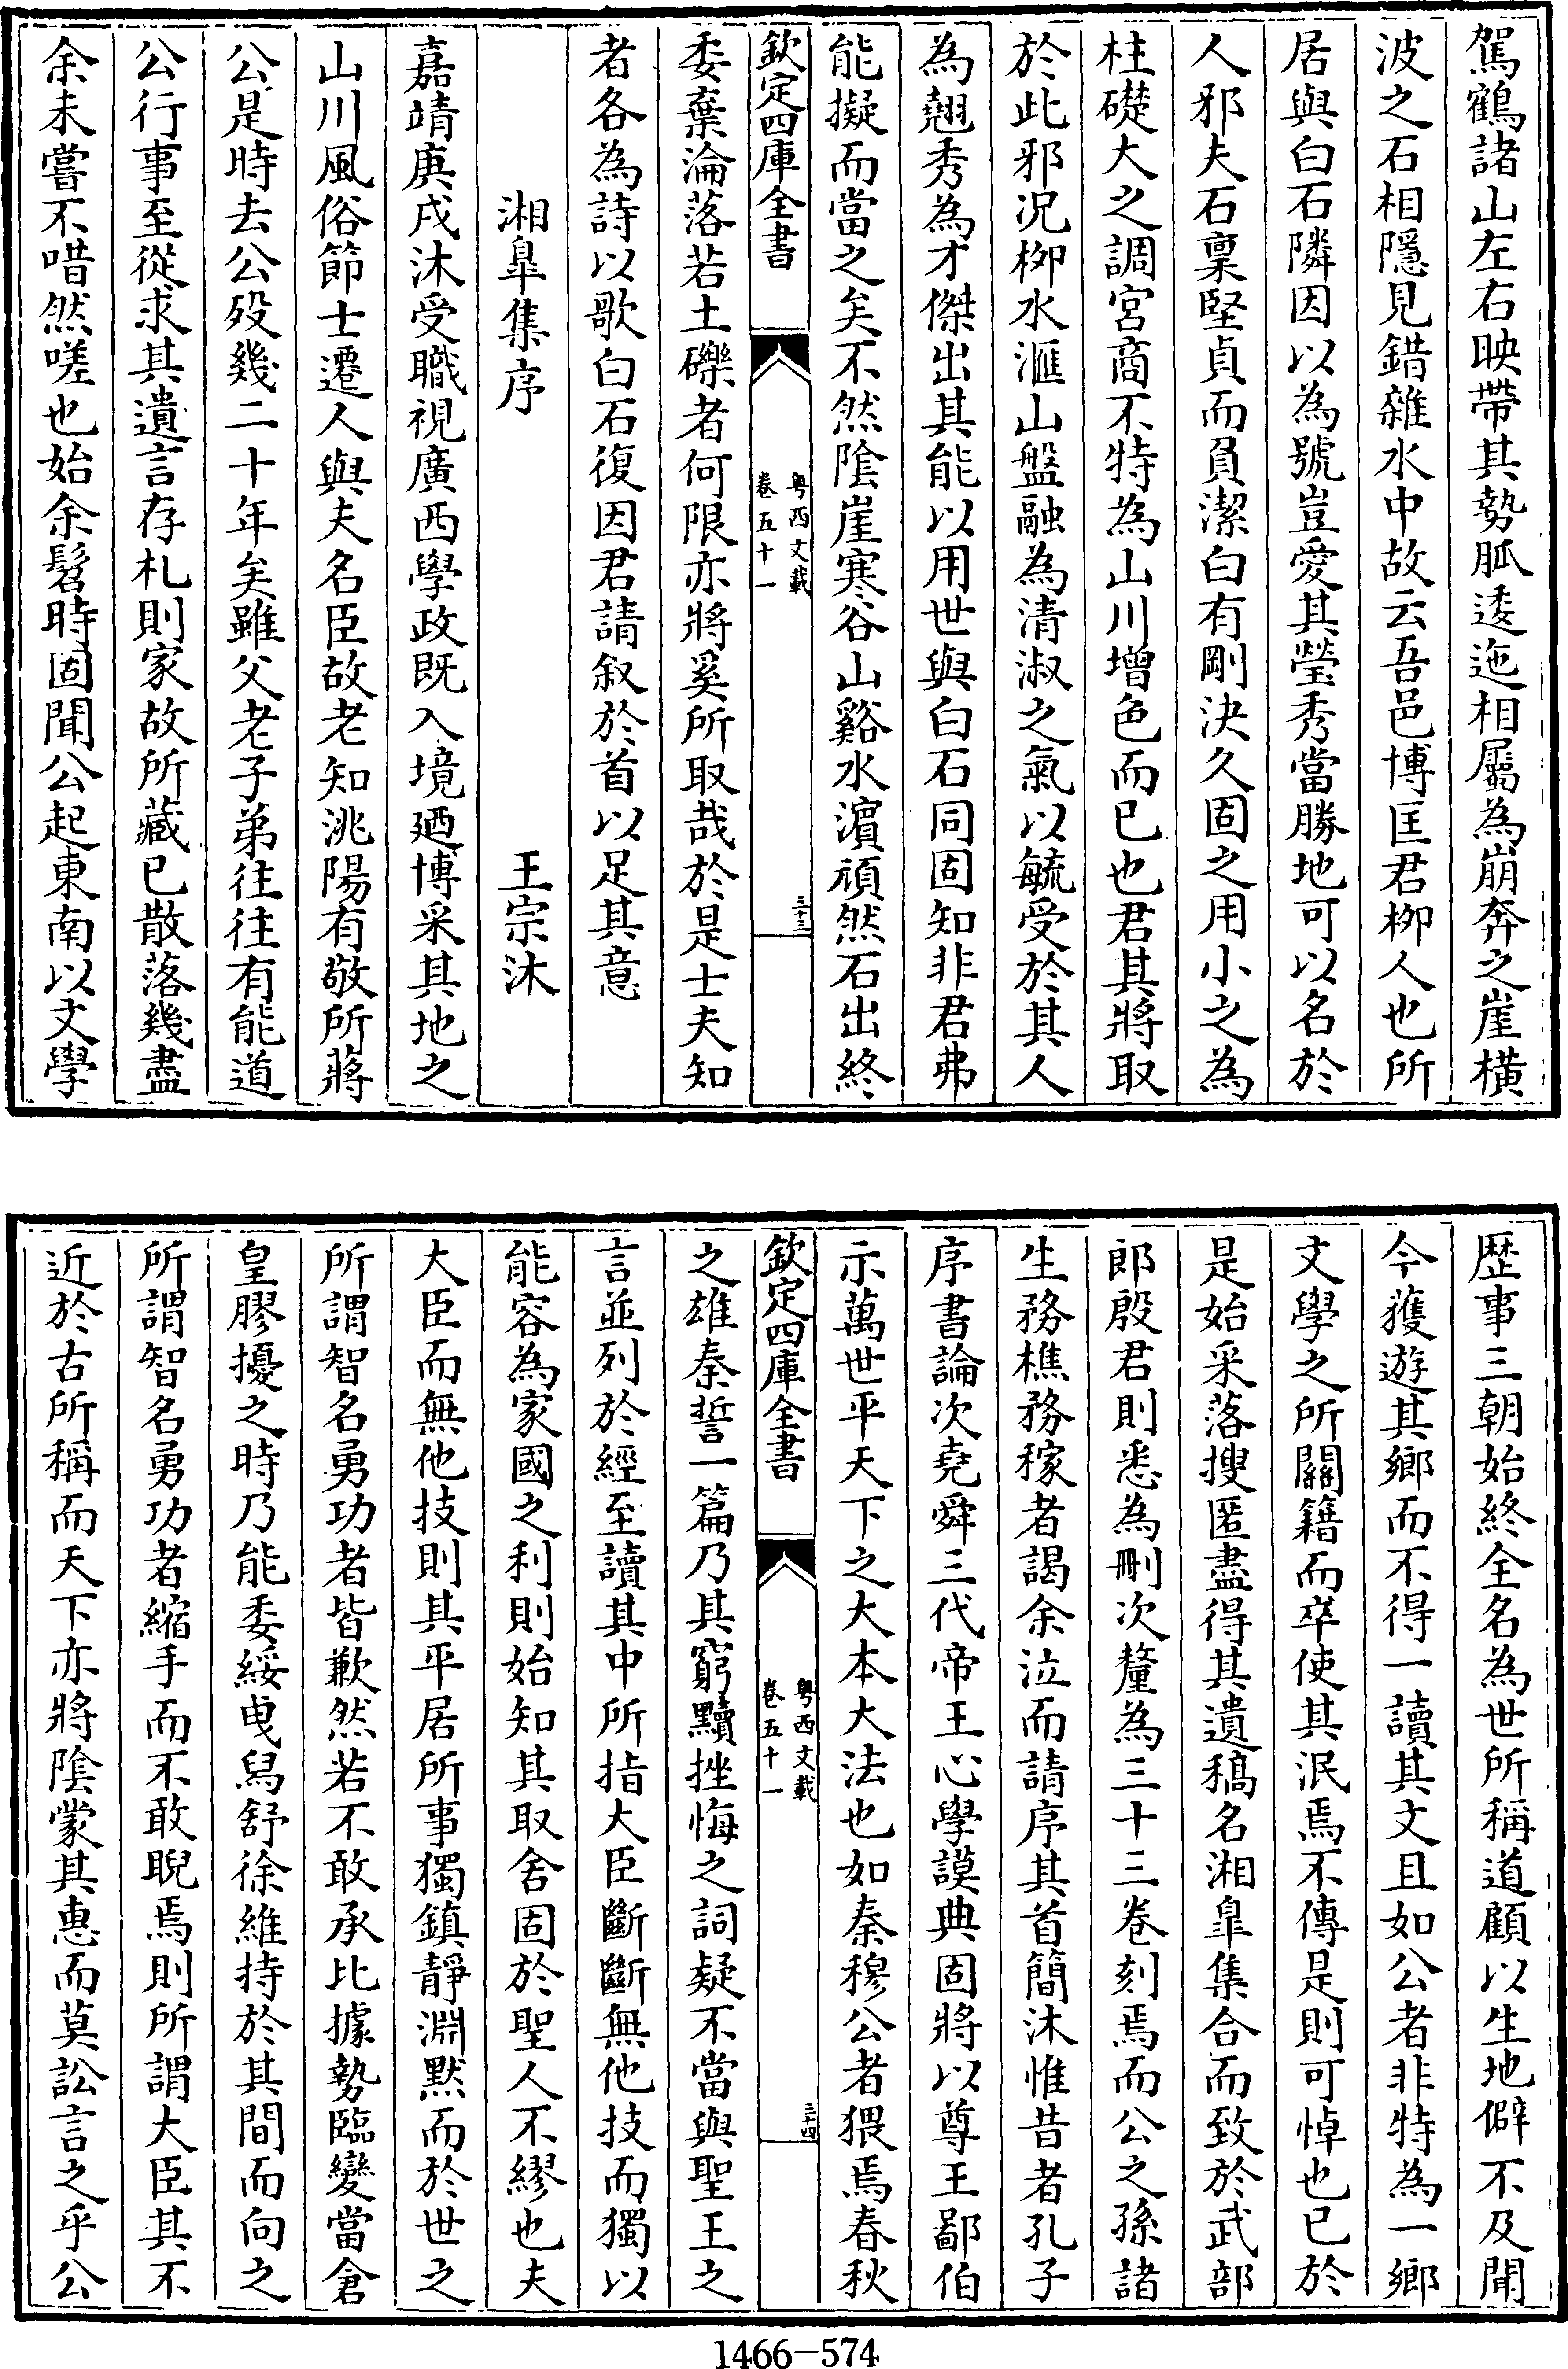 駕鶴諸山左右映帶其勢胍逶迤相屬為崩奔之崖橫
波之石相隱見錯雜水中故云吾邑博匡君栁人也所
居與白石隣因以為號豈愛其瑩秀當勝地可以名於
人邪夫石稟堅貞而員潔白有剛決久固之用小之為
柱礎大之調宮商不特為山川增色而已也君其將取
於此邪况栁水滙山盤融為清淑之氣以毓受於其人
為翹秀為才傑出其能以用世與白石同固知非君弗
能擬而當之矣不然陰崖寒谷山谿水濵頑然石出終
欽定四庫全書
粤西文載
卷五十一
三十三
委棄淪落若土礫者何限亦將奚所取哉於是士夫知
者各為詩以歌白石復因君請叙於首以足其意
湘臯集序 王宗沐
嘉靖庚戌沐受職視廣西學政既入境廼博采其地之
山川風俗節士遷人與夫名臣故老知洮陽有敬所蔣
公是時去公歿幾二十年矣雖父老子弟往往有能道
公行事至從求其遺言存札則家故所藏已散落幾盡
余未嘗不唶然嗟也始余髫時固聞公起東南以文學
歴事三朝始終全名為世所稱道顧以生地僻不及聞
今獲遊其鄉而不得一讀其文且如公者非特為一鄉
文學之所關籍而卒使其泯焉不傳是則可悼也已於
是始采落搜匿盡得其遺稿名湘臯集合而致於武部
郎殷君則悉為刪次釐為三十三卷刻焉而公之孫諸
生務樵務稼者謁余泣而請序其首簡沐惟昔者孔子
序書論次堯舜三代帝王心學謨典固將以尊王鄙伯
示萬世平天下之大本大法也如秦穆公者猥焉春秋
欽定四庫全書
粤西文載
卷五十一
三十四
之雄秦誓一篇乃其窮黷挫悔之詞疑不當與聖王之
言並列於經至讀其中所指大臣斷斷無他技而獨以
能容為家國之利則始知其取舍固於聖人不繆也夫
大臣而無他技則其平居所事獨鎮靜淵默而於世之
所謂智名勇功者皆歉然若不敢承比據勢臨變當倉
皇膠擾之時乃能委綏曵舄舒徐維持於其間而向之
所謂智名勇功者縮手而不敢睨焉則所謂大臣其不
近於古所稱而天下亦將陰蒙其惠而莫訟言之乎公
1466-574